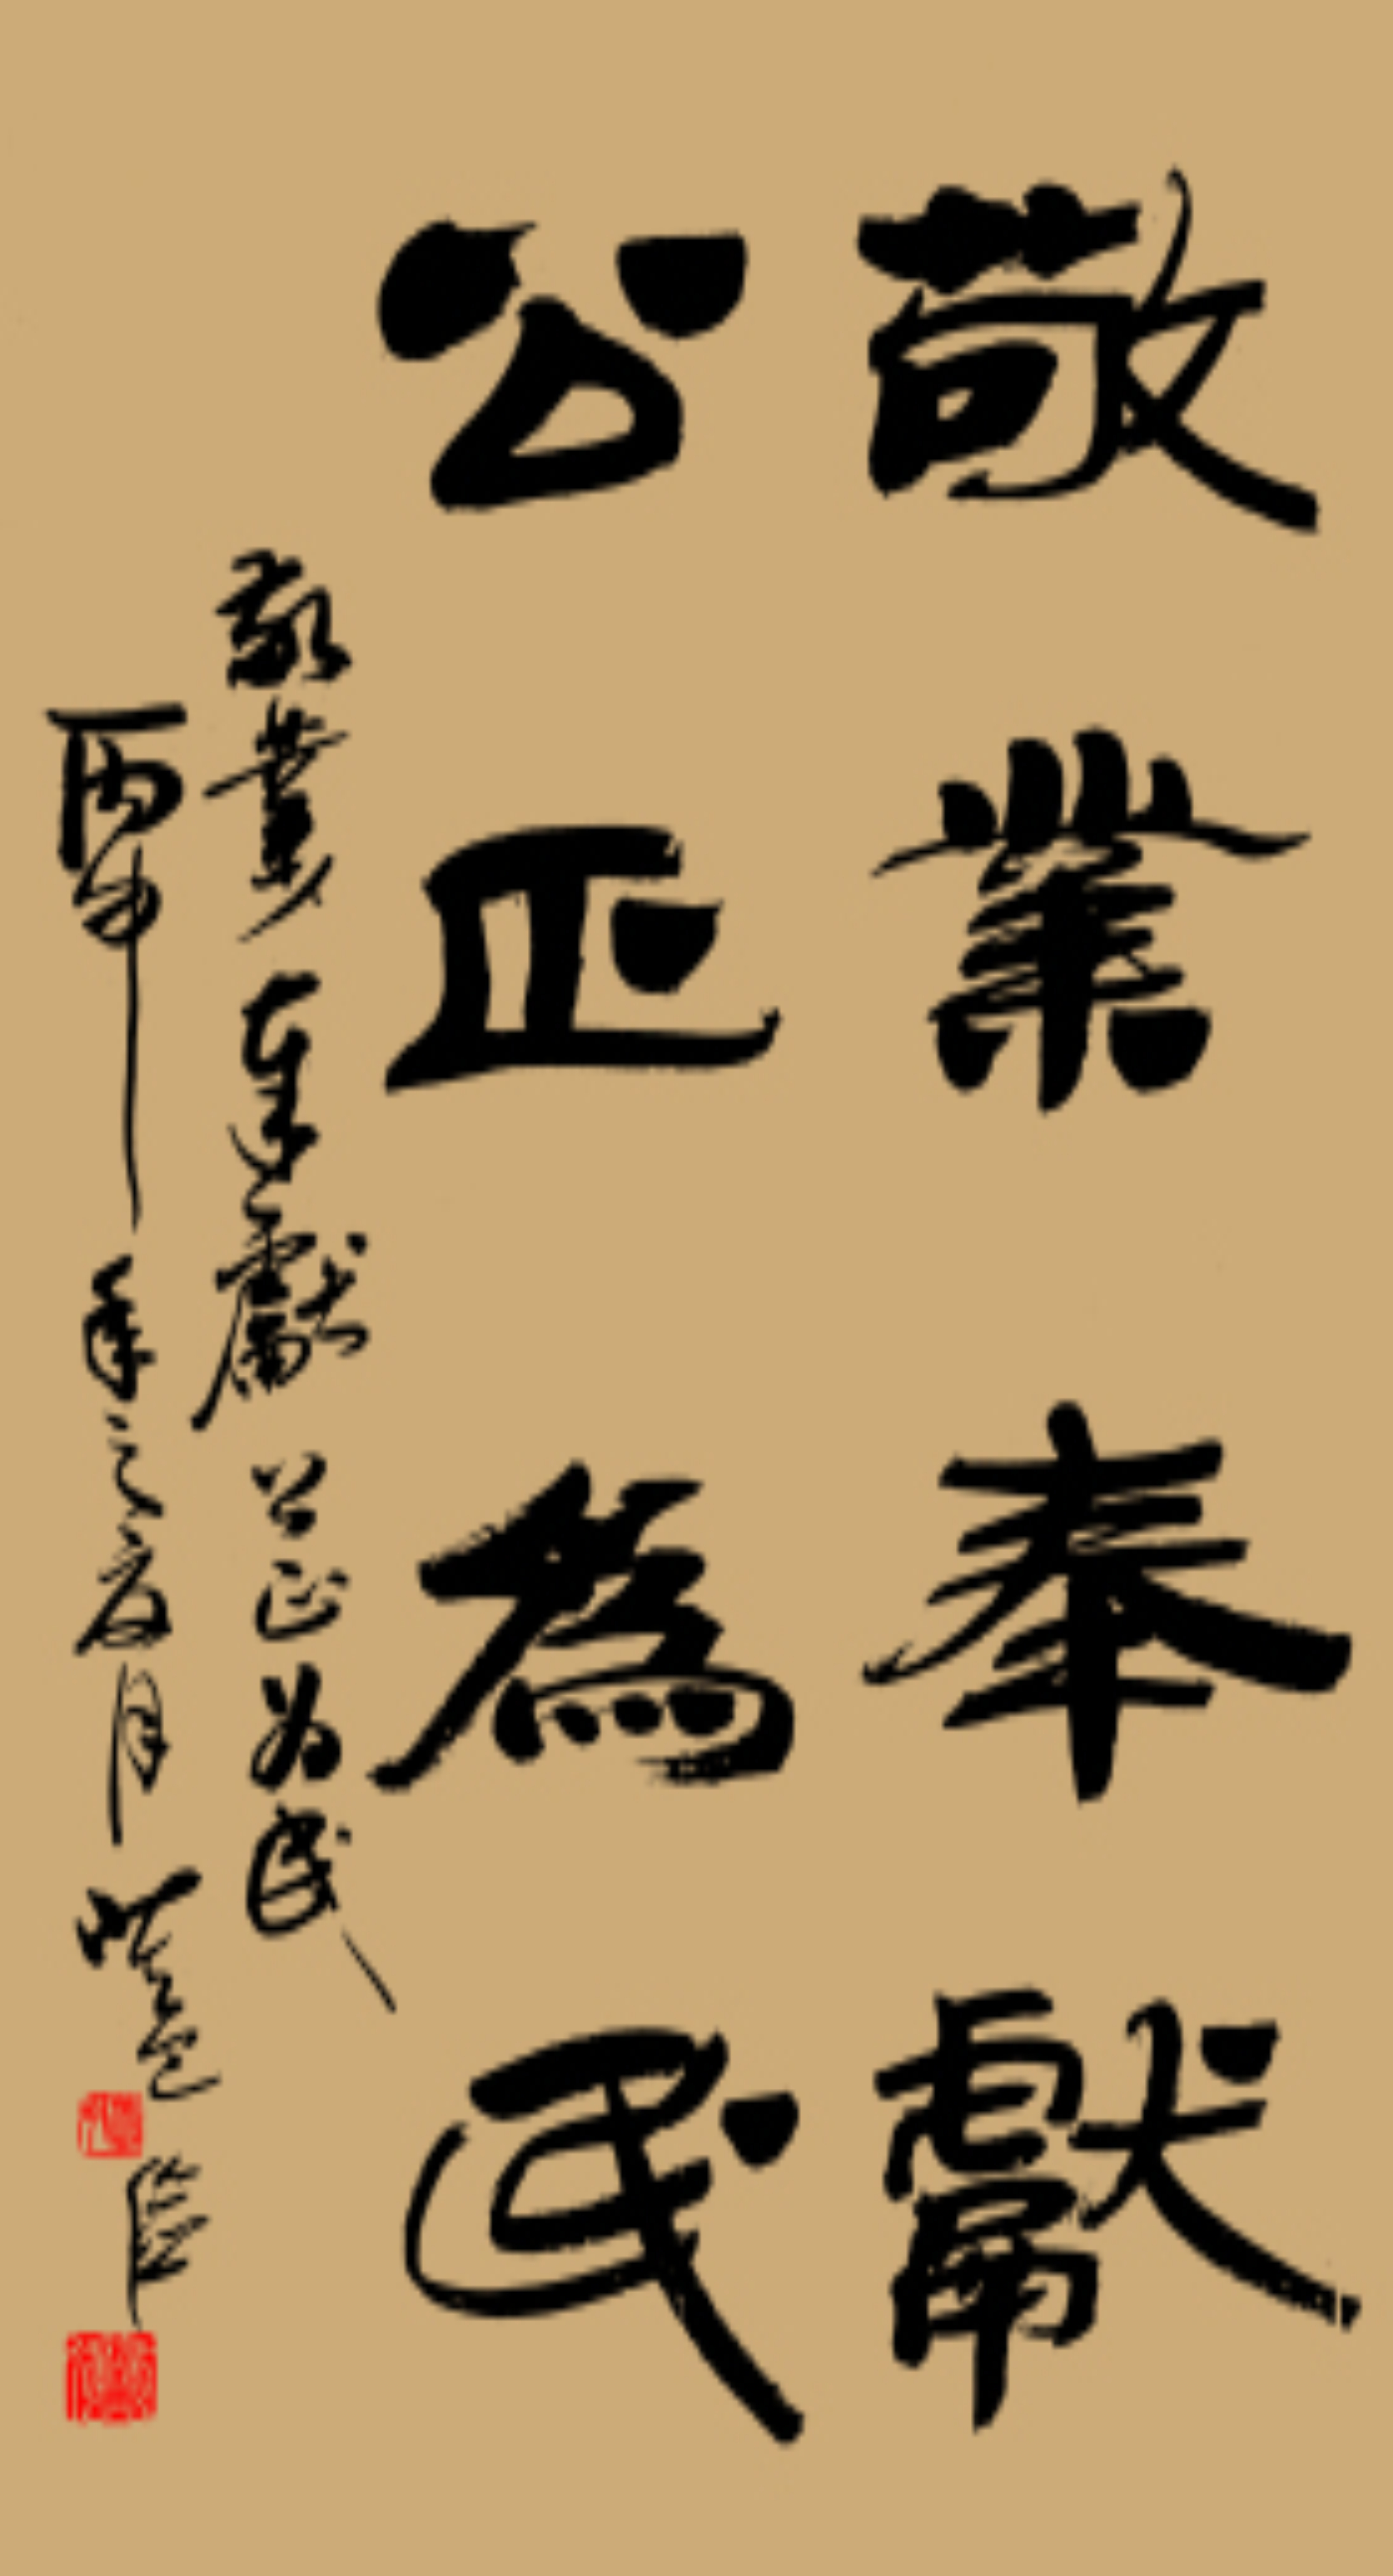 敬業奉獻
公正為民
敬業奉獻公正为民
丙申年之夏月